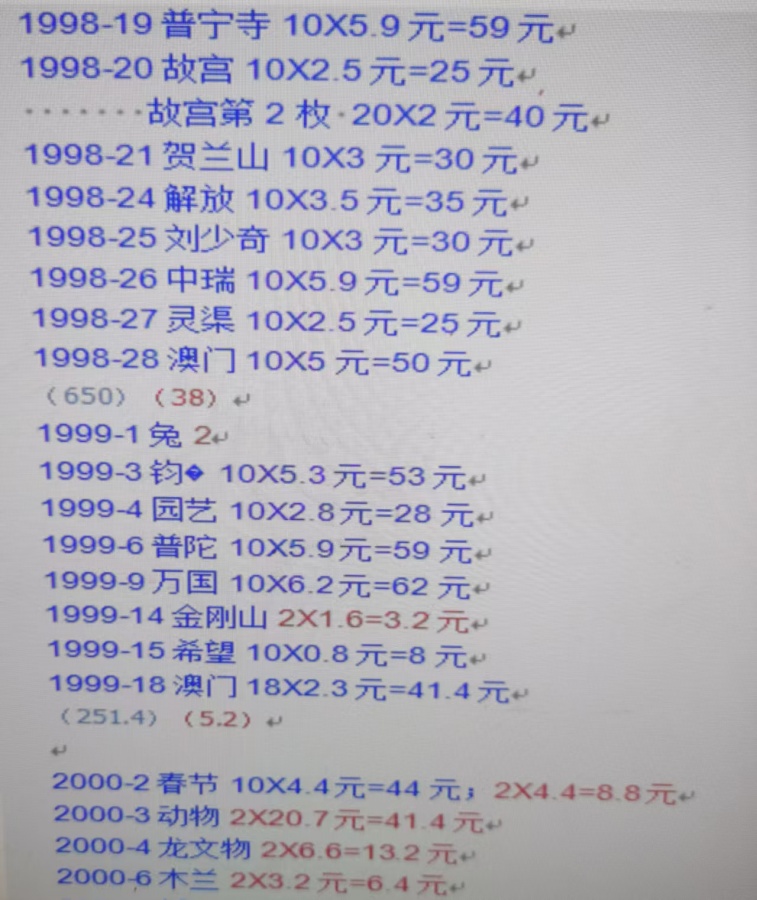 1998-19 普宁寺 10X5.9 元=59 元
1998-20 故宫 10X2.5 元=25 元
·······故宫第 2 枚·20X2 元=40 元
1998-21 贺兰山 10X3 元=30 元
1998-24 解放 10X3.5 元=35 元
1998-25 刘少奇 10X3 元=30 元
1998-26 中瑞 10X5.9 元=59 元
1998-27 灵渠 10X2.5 元=25 元
1998-28 澳门 10X5 元=50 元
（650）（38）
1999-1 兔 2
1999-3 钧� 10X5.3 元=53 元
1999-4 园艺 10X2.8元=28 元
1999-6 普陀 10X5.9元=59 元
1999-9 万国 10X6.2元=62 元
1999-14 金刚山 2X1.6=3.2 元
1999-15 希望 10X0.8 元=8 元
1999-18 澳门 18X2.3 元=41.4 元
（251.4）（5.2）
2000-2 春节 10X4.4元=44 元；2X4.4=8.8元
2000-3 动物 2X20.7元=41.4 元
2000-4 龙文物 2X6.6=13.2 元
2000-6 木兰 2X3.2 元=6.4 元